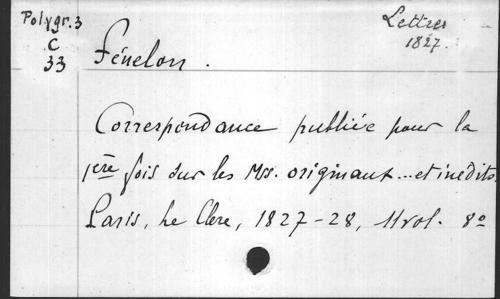 Polygr. 3
C
33
Lettres
1827.
Fénelon.
Correspondance publiée pour la
1ère fois sur les Mss. originaux ... et inédits
Paris, Le Clere, 1827-28, 11 vol. 8º